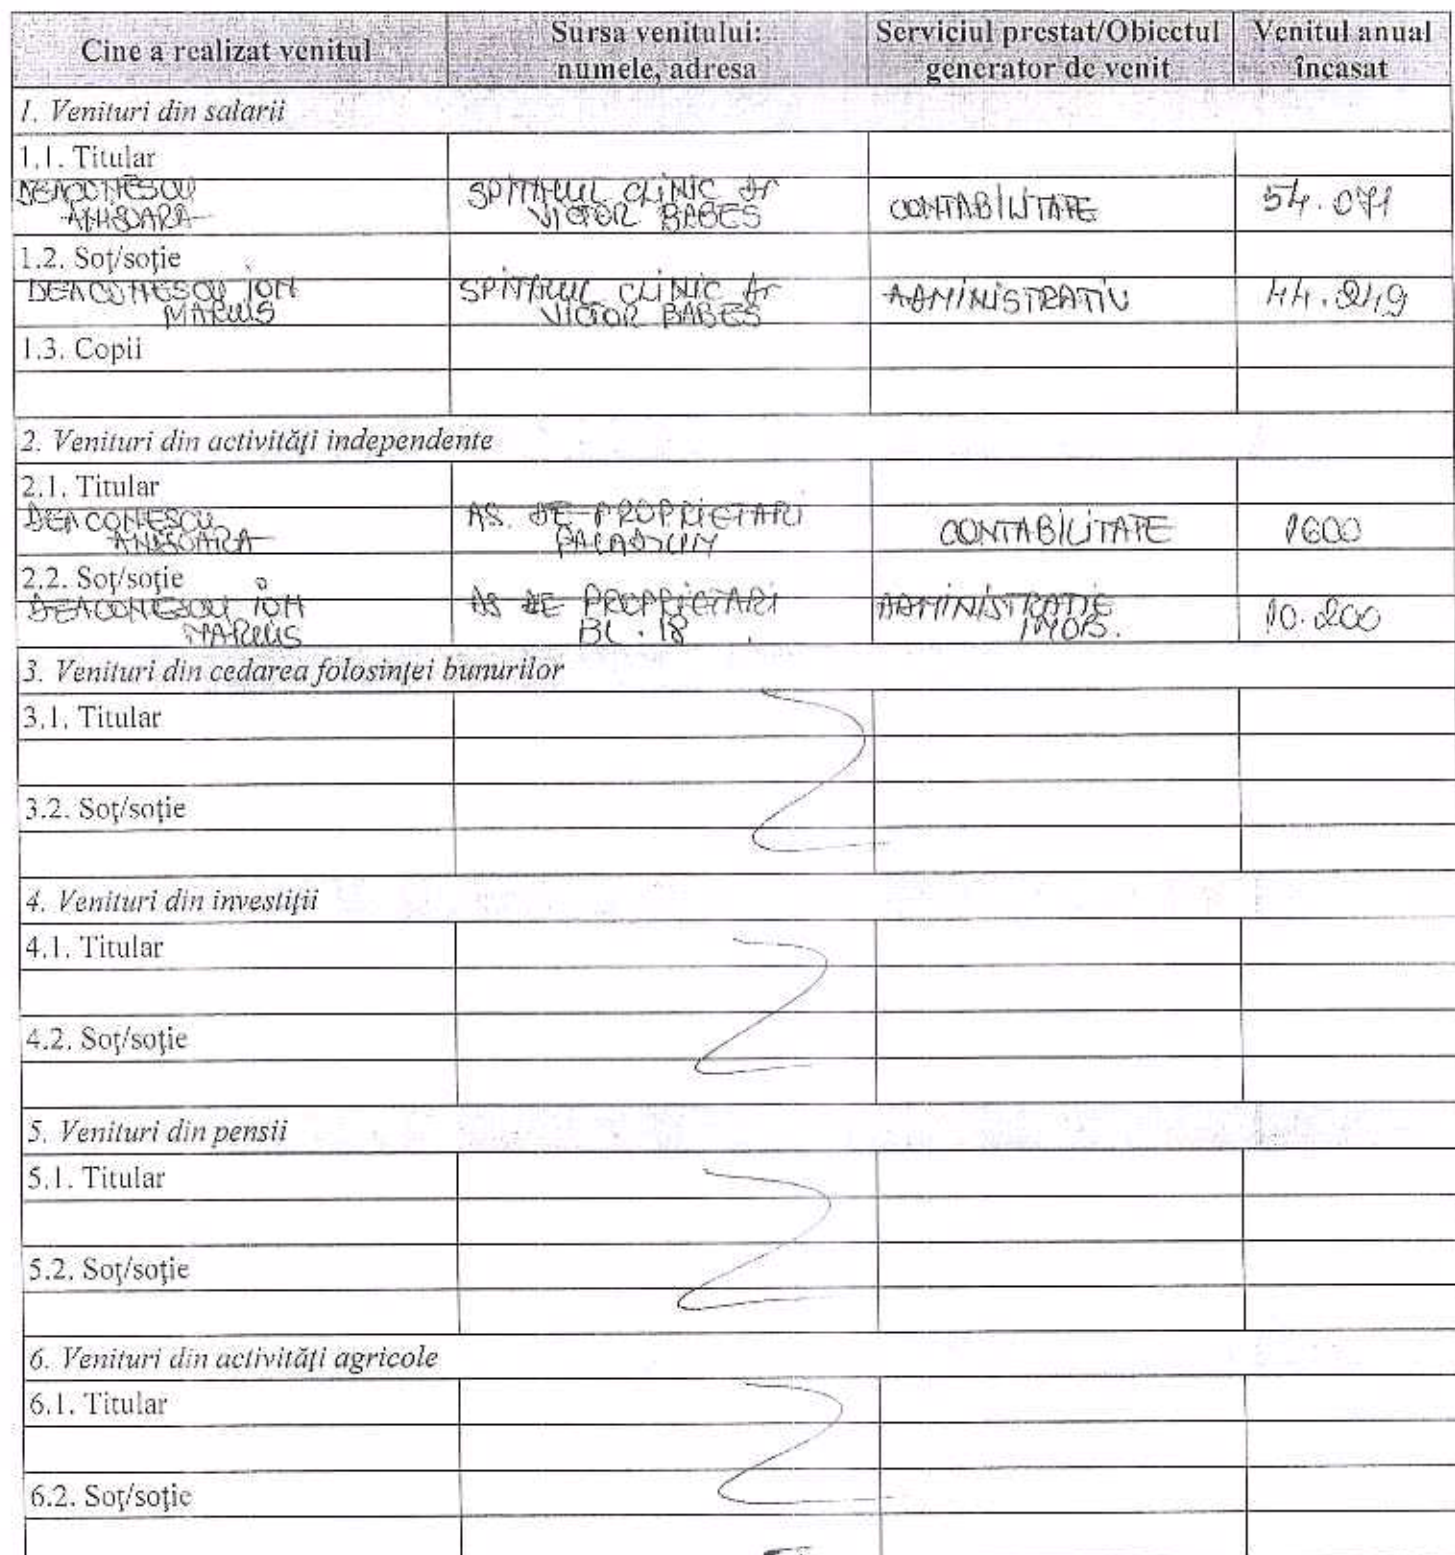 Cine a realizat venitul
Sursa venitului:
numele, adresa
Serviciul prestat/Obiectul
generator de venit
Venitul anual
încasat
1. Venituri din salarii
1.1. Titular
DEACONESCU
ANISOARA
SPITALUL CLINIC dr
VICTOR BABES
CONTABILITATE
54.071
1.2. Soț/soție
DEACONESCU ION
MARIUS
SPITALUL CLINIC dr
VICTOR BABES
ADMINISTRATIV
1.3. Copii
2. Venituri din activități independente
2.1. Titular
DEACONESCU
ANISOARA
AS. DE PROPRIETARI
CONTABILITATE
1600
2.2. Soț/soție
DEACONESCU ION
MARIUS
AS DE PROPRIETARI
BL. 18
ADMINISTRATIE
IMOB.
10.200
3. Venituri din cedarea folosinței bunurilor
3.1. Titular
3.2. Soț/soție
4. Venituri din investiții
4.1. Titular
4.2. Soț/soție
5. Venituri din pensii
5.1. Titular
5.2. Soț/soție
6. Venituri din activități agricole
6.1. Titular
6.2. Soț/soție